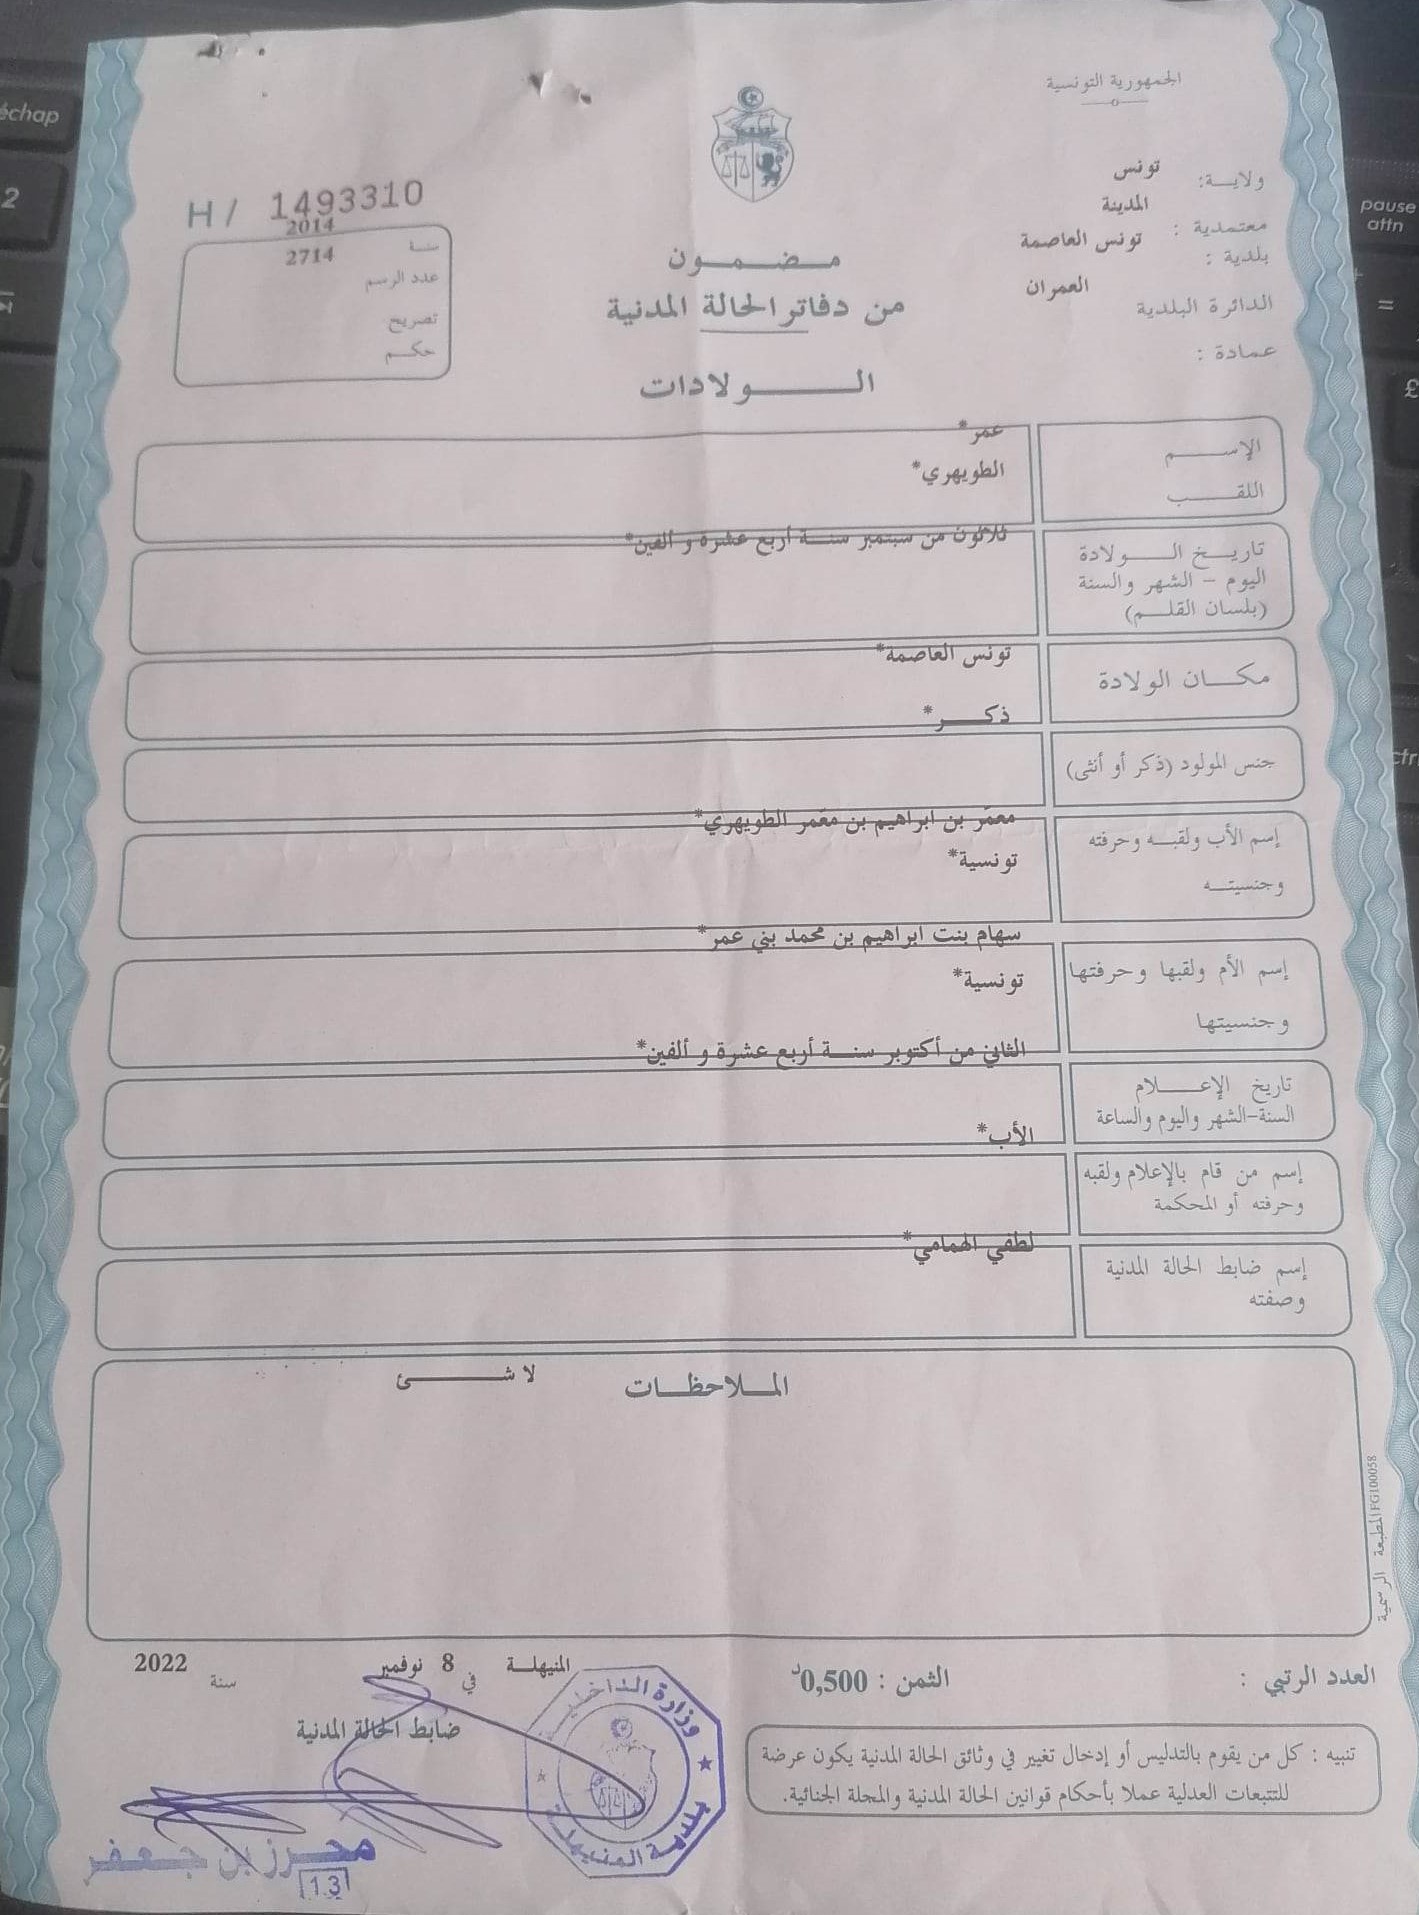 الجمهورية التونسية
ولاية: تونس
معتمدية : المدينة
بلدية : تونس العاصمة
الدائرة البلدية العمران
عمادة :
H / 1493310
سنة 2014
عدد الرسم 2714
تصريح
حكم
مضمون
من دفاتر الحالة المدنية
الولادات
الإسم عمر*
اللقب الطويهري*
تاريخ الولادة ثلاثون من سبتمبر سنة أربع عشرة و ألفين*
اليوم - الشهر والسنة
(بلسان القلم)
مكان الولادة تونس العاصمة*
جنس المولود (ذكر أو أنثى) ذكر*
إسم الأب ولقبه وحرفته معمّر بن ابراهيم بن معمّر الطويهري*
وجنسيته تونسية*
إسم الأم ولقبها وحرفتها سهام بنت ابراهيم بن محمد بني عمر*
وجنسيتها تونسية*
تاريخ الإعلام الثاني من أكتوبر سنة أربع عشرة و ألفين*
السنة-الشهر واليوم والساعة
إسم من قام بالإعلام ولقبه الأب*
وحرفته أو المحكمة
إسم ضابط الحالة المدنية لطفي الهمامي*
وصفته
الملاحظات لا شئ
المطبعة الرسمية PG100058
العدد الرتبي :
الثمن : 0,500د
المنيهلة في 8 نوفمبر سنة 2022
ضابط الحالة المدنية
تنبيه : كل من يقوم بالتدليس أو إدخال تغيير في وثائق الحالة المدنية يكون عرضة
للتتبعات العدلية عملا بأحكام قوانين الحالة المدنية والمجلة الجنائية.
وزارة الداخلية
بلدية المنيهلة
محرز بن جعفر
1.3
échap
2
pause
attn
=
£
ctrl